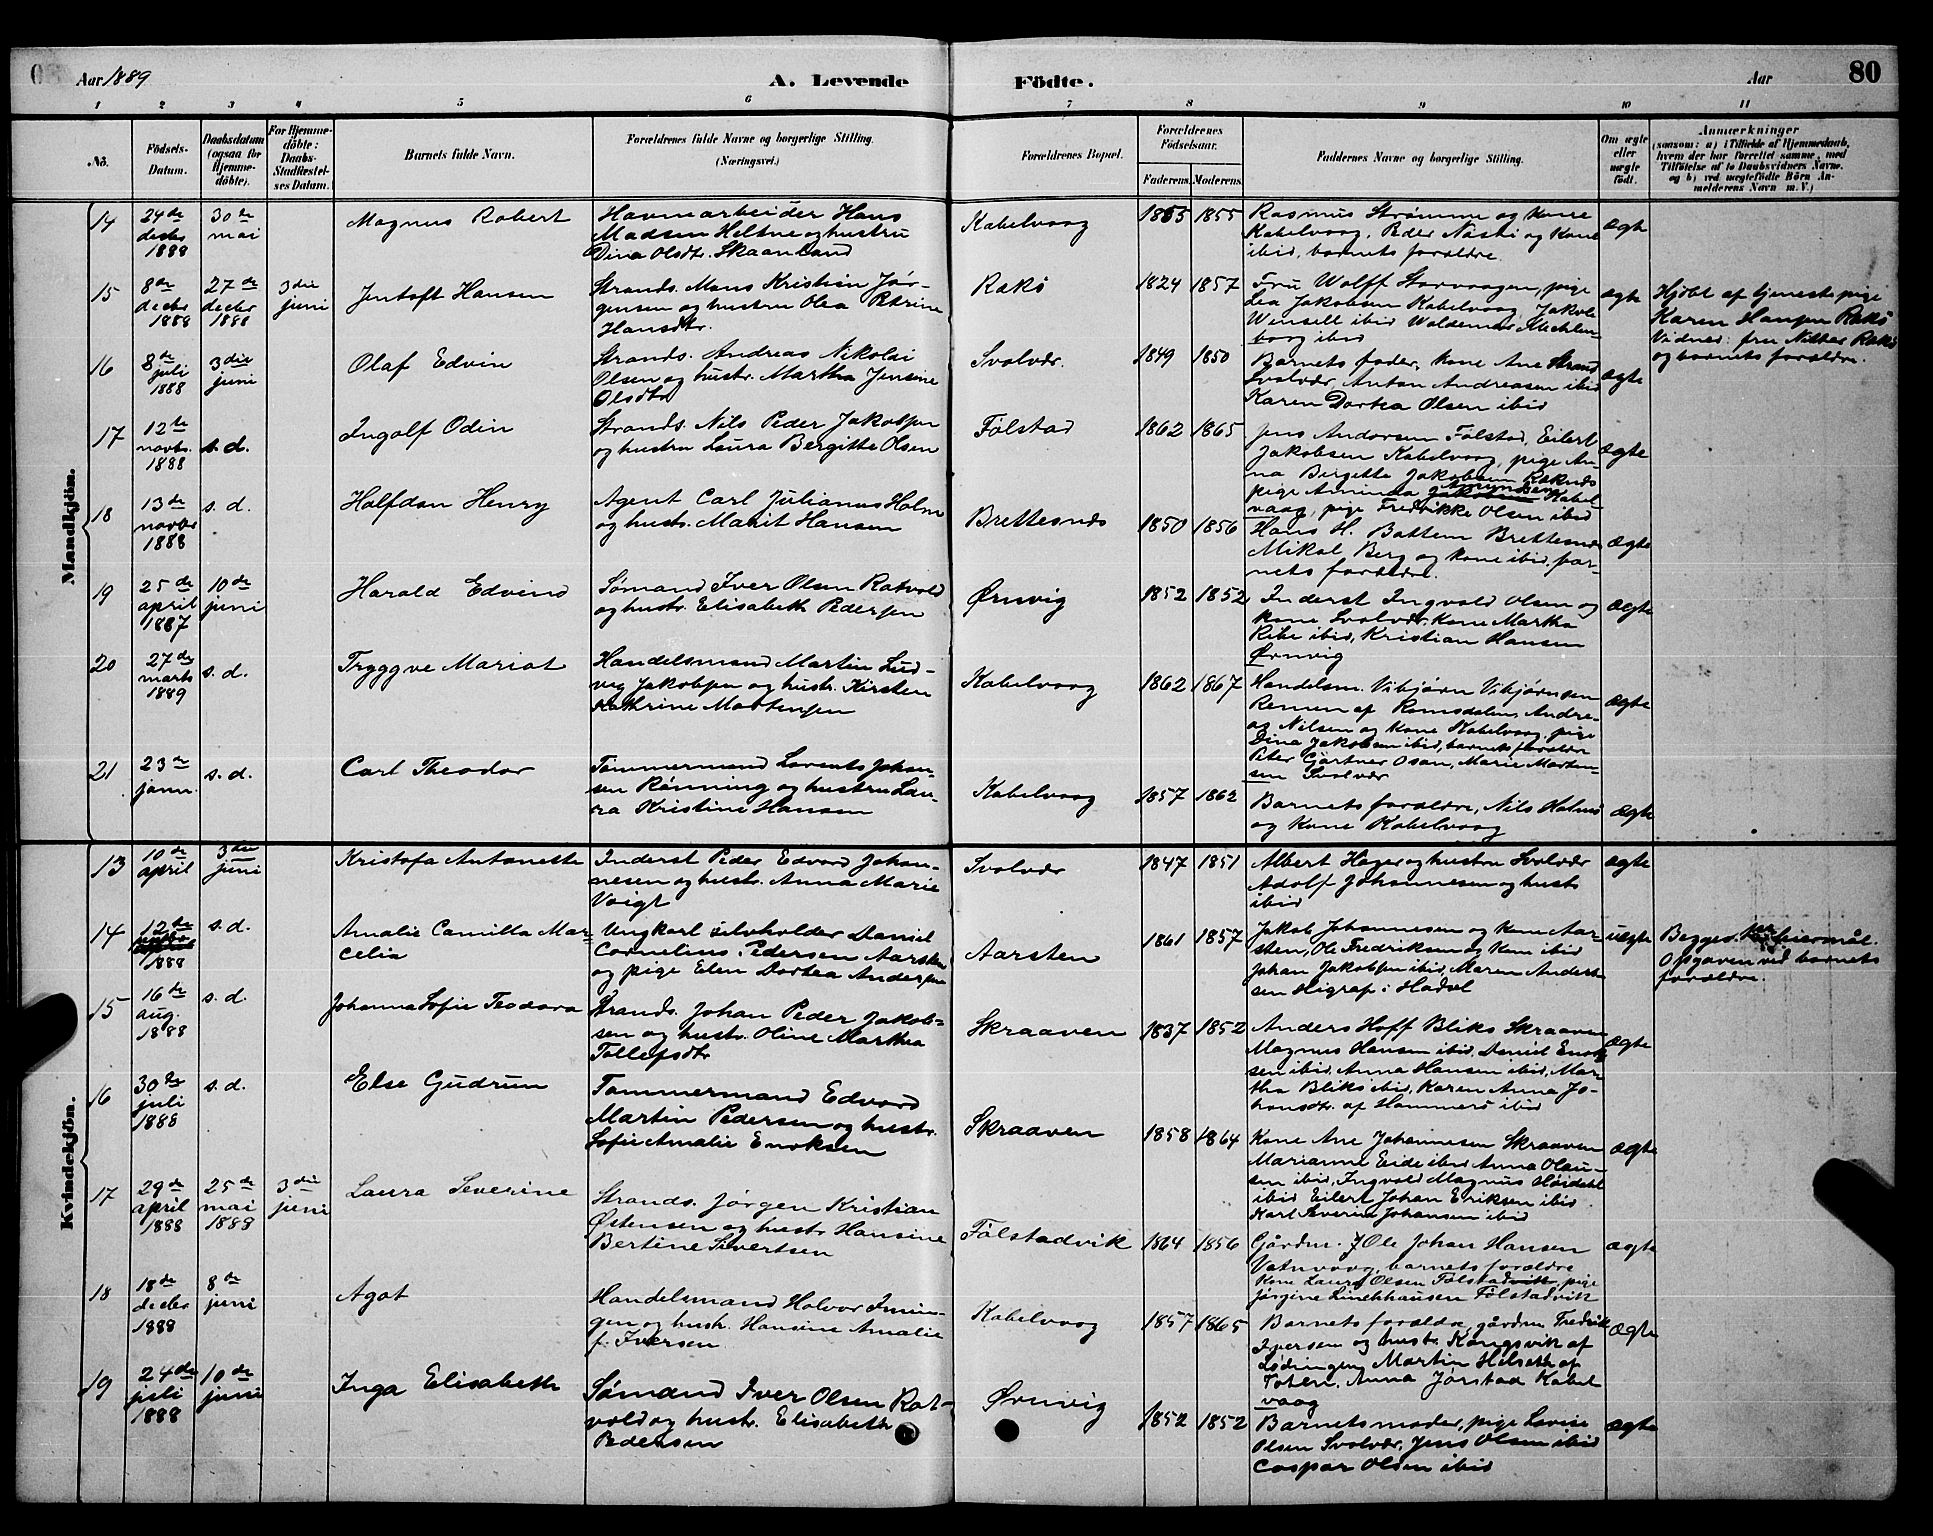 Aar 1889
A. Levende
Födte.
Aar
80
1 2 3 4 5 6 7 8 9 10 11
No.
Födsels-
Datum.
Daabsdatum
(ogsaa for
Hjemme-
döbte).
For Hjemme-
döbte:
Daabs-
Stadfæstel-
ses Datum.
Barnets fulde Navn.
Forældrenes fulde Navne og borgerlige Stilling.
(Næringsvei.)
Forældrenes Bopæl.
Forældrenes
Födselsaar.
Faderens. Moderens.
Faddernes Navne og borgerlige Stilling.
Om ægte
eller
uægte
födt.
Anmærkninger
(saasom: a) i Tilfælde af Hjemmedaab,
hvem der har forrettet samme, med
Tilföielse af to Daabsvidners Navne,
og b) ved uægtefödte Börn An-
melderens Navn m. V.)
Mandkjön.
14
24de
decbr
1888
30te
mai
Magnus Robert
Havnearbeider Hans
Madsen Heltne og hustru
Dina Olsdtr. Skaanland
Kabelvaag
1853 1855
Rasmus Strømme og kone
Kabelvaag, Peder Næss og Kone
ibid, barnets forældre.
ægte
15
8de
decbr
1888
27de
decbr
1888
3die
juni
Jentoft Hansen
Strands. Mons Kristian Jør-
gensen og hustru Olea Petrine
Hansdtr.
Rækø
1824 1857
Fru Wolff Storvaagen, pige
Lea Jakobsen Kabelvaag, Jakob
ibid
ægte
Hjdbt af tjenestepige
Karen Hansen Rækø
Vidner: fru Rækø
og barnets forældre.
16
8de
juli
1888
3die
juni
Olaf Edvin
Strands. Andreas Nikolai
Olsen og hustr. Martha Jensine
Olsdtr
Svolvær.
1849 1850
Barnets fader, kone Ane Strand
Svolvær, Anton Andreasen ibid
Karen Dortea Olsen ibid
ægte
17
12te
novbr.
1888
s. d.
Ingolf Odin
Strands. Nils Peder Jakobsen
og hustru Laura Bergitte Olsen
Følstad
1862 1865
Jens Andersen Følstad, Eilert
Jakobsen Kabelvaag, pige An-
na Bergitte Jakobsen
pige Kabel-
vaag, pige Fredrikke Olsen ibid
ægte
18
13de
novbr
1888
s. d.
Halfdan Henry
Agent Carl Julianus Holm
og hustr. Marit Hansen
Brettesnæs
1850 1856
Hans H. Brettesnæs
Mikal Berg og kone ibid, bar-
nets forældre.
ægte
19
25de
april
1887
10de
juni
Harald Edvind
Sømand Iver Olsen Ratvold
og hustr. Elisabeth Pedersen
Ørnvig
1852 1852
Inderst Ingvald Olsen og
kone Svolvær. Kone Martha
Ribe ibid, Kristian Hansen
Ørnvig
ægte
20
27de
marts
1889
s. d.
Tryggve Mariat
Handelsmand Martin Lud-
vig Jakobsen og hustr. Kirsten
Kathrine Mortensen
Kabelvaag
1862 1867
Handelsm. Vibjørn Vibjørnsen
Remen af Romsdalen, Andre-
as Nilsen og kone Kabelvaag. pige
Dina Jakobsen ibid, barnets forældre
Peter Gärtner Osan, Marie Morten-
sen Svolvær
ægte
21
23de
janr.
s. d.
Carl Theodor
Tømmermand Lorents Johan-
sen Rønning og hustru Lau-
ra Kristine Hansen
Kabelvaag
1857 1862
Barnets forældre, Nils Holmø
og kone Kabelvaag
ægte
Kvindekjön.
13
10de
april
3die
juni
Kristofa Antonette
Inderst Peder Edvard Johan-
nesen og hustr. Anna Marie
Voigt
Svolvær
1847 1851
Albert Hager og hustru Svolvær
Adolf Johannesen og hustr
ibid
ægte
14
12te
1888
s. d.
Amalie Camilla Mar-
celia
Ungkarl selvholder Daniel
Cornelius Pedersen Aarsten
og pige Elen Dortea Andersen
Aarsten
1861 1857
Jakob Johannesen og kone Aar-
sten, Ole Fredriksen og kone ibid
Johan Jakobsen ibid, Maren Ander-
sen Higraf i Hadsel
uægte
Begges 1ste leiermål.
Opgaven ved barnets
forældre.
15
16de
aug.
1888
s. d.
Johanna Sofie Teodora
Strands. Johan Peder Jakob-
sen og hustr. Oline Martha
Tollefsdtr
Skraaven
1837 1852
Anders Hoff Bliks Skraaven
Magnus Hansen ibid, Daniel Enok-
sen ibid, Anna Hansen ibid, Mar-
tha Bliks ibid, Karen Anna Jo-
hansdtr. af Hammerø ibid
ægte
16
30de
juli
1888
s. d.
Else Gudrun
Tømmermand Edvard
Martin Pedersen og hustr.
Sofie Amalie Enoksen
Skraaven
1858 1864
Kone Ane Johannesen Skraaven
Marianne Eide ibid Anna Olau-
sen ibid, Ingvald Magnus Høidahl
ibid Eilert Johan Eriksen ibid
Karl Severin Johansen ibid
ægte
17
29de
april
1888
25de
mai
1888
3die
juni
Laura Severine
Strands. Jørgen Kristian
Østensen og hustr Hansine
Bertine Sivertsen
Følstadvik
1864 1856
Gårdm. Ole Johan Hansen
Vatnvaag, barnets forældre
Kone Laura Olsen Følstadvik, pige
Jørgine Linckhausen Følstadvik
ægte
18
18de
decbr
1888
8de
juni
Agot
Handelsmand Halvor Imin-
gen og hustr. Hansine Amalie
f. Iversen
Kabelvaag
1857 1865
Barnets forældre, gårdm Fredrik
Iversen og hustr. Kongsvik af
Lødingen, Martin Hilseth af
Toten. Anna Jørstad Kabel
vaag
ægte
19
24de
juli
1888
10de
juni
Inga Elisabeth
Sømand Iver Olsen Rat-
vold og hustr. Elisabeth
Pedersen
Ørnvig
1852 1852
Barnets moder, pige Lovise
Olsen Svolvær, Jens Olsen ibid
Caspar Olsen ibid
ægte